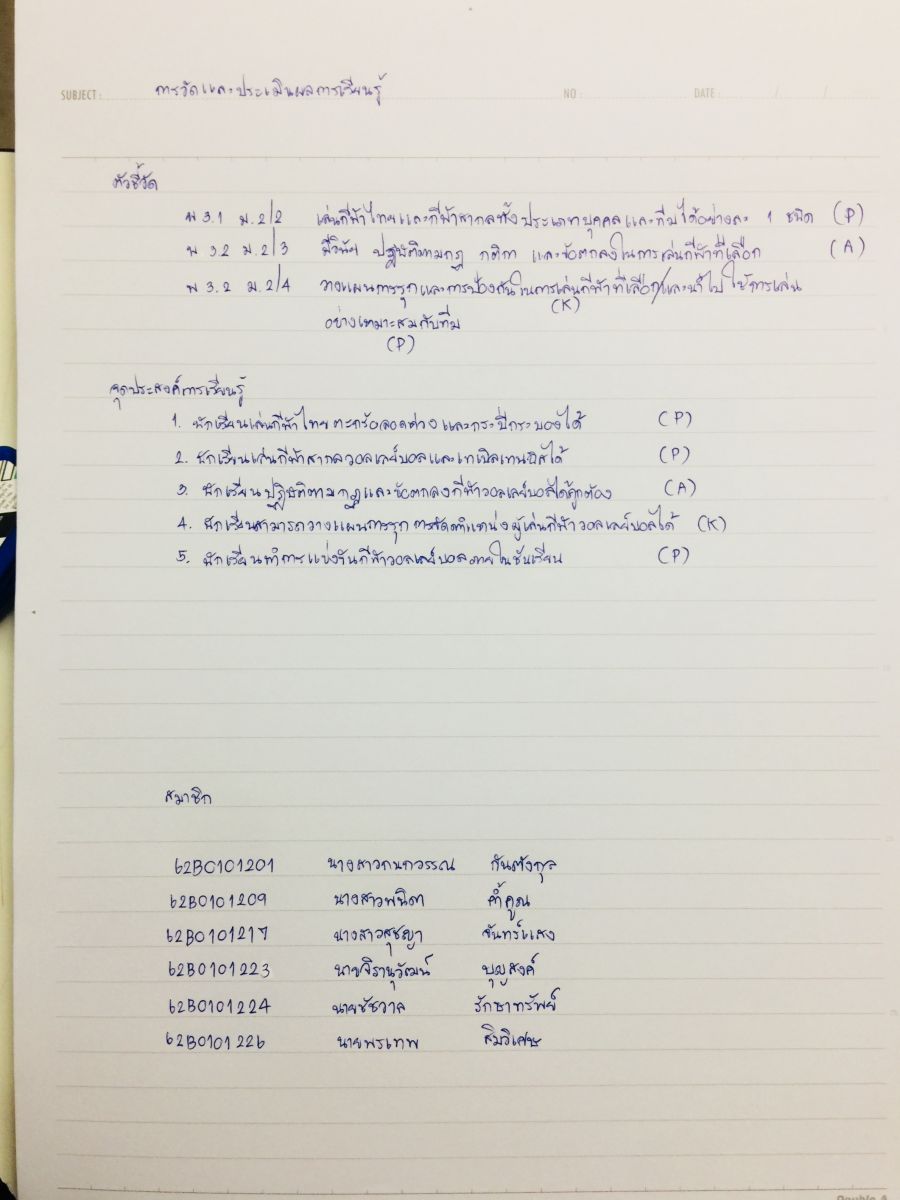 SUBJECT : การวัดและประเมินผลการเรียนรู้ NO : DATE : / /
ตัวชี้วัด
พ 3.1 ม.2/2 เล่นกีฬาไทยและกีฬาสากลทั้งประเภทบุคคลและทีมได้อย่างละ 1 ชนิด (P)
พ 3.2 ม.2/3 มีวินัย ปฏิบัติตามกฎ กติกา และข้อตกลงในการเล่นกีฬาที่เลือก (A)
พ 3.2 ม.2/4 วางแผนการรุกและการป้องกันในการเล่นกีฬาที่เลือก/และนำไปใช้การเล่น
(K)
อย่างเหมาะสมกับทีม
(P)
จุดประสงค์การเรียนรู้
1. นักเรียนเล่นกีฬาไทยตะกร้อลอดห่วงและกระบี่กระบองได้ (P)
2. นักเรียนเล่นกีฬาสากลวอลเลย์บอลและเทเบิลเทนนิสได้ (P)
3. นักเรียนปฏิบัติตามกฎและข้อตกลงกีฬาวอลเลย์บอลได้ถูกต้อง (A)
4. นักเรียนสามารถวางแผนการรุก การจัดตำแหน่งผู้เล่นกีฬาวอลเลย์บอลได้ (K)
5. นักเรียนทำการแข่งขันกีฬาวอลเลย์บอลภายในชั้นเรียน (P)
สมาชิก
62B0101201 นางสาวกนกวรรณ กันตังกุล
62B0101209 นางสาวพนิดา ค้ำคูณ
62B0101217 นางสาวสุชญา จันทร์แสง
62B0101223 นายจิรานุวัฒน์ บุญสงค์
62B0101224 นายชัชวาล รักษาทรัพย์
62B0101226 นายพรเทพ สิมวิเศษ
Double A